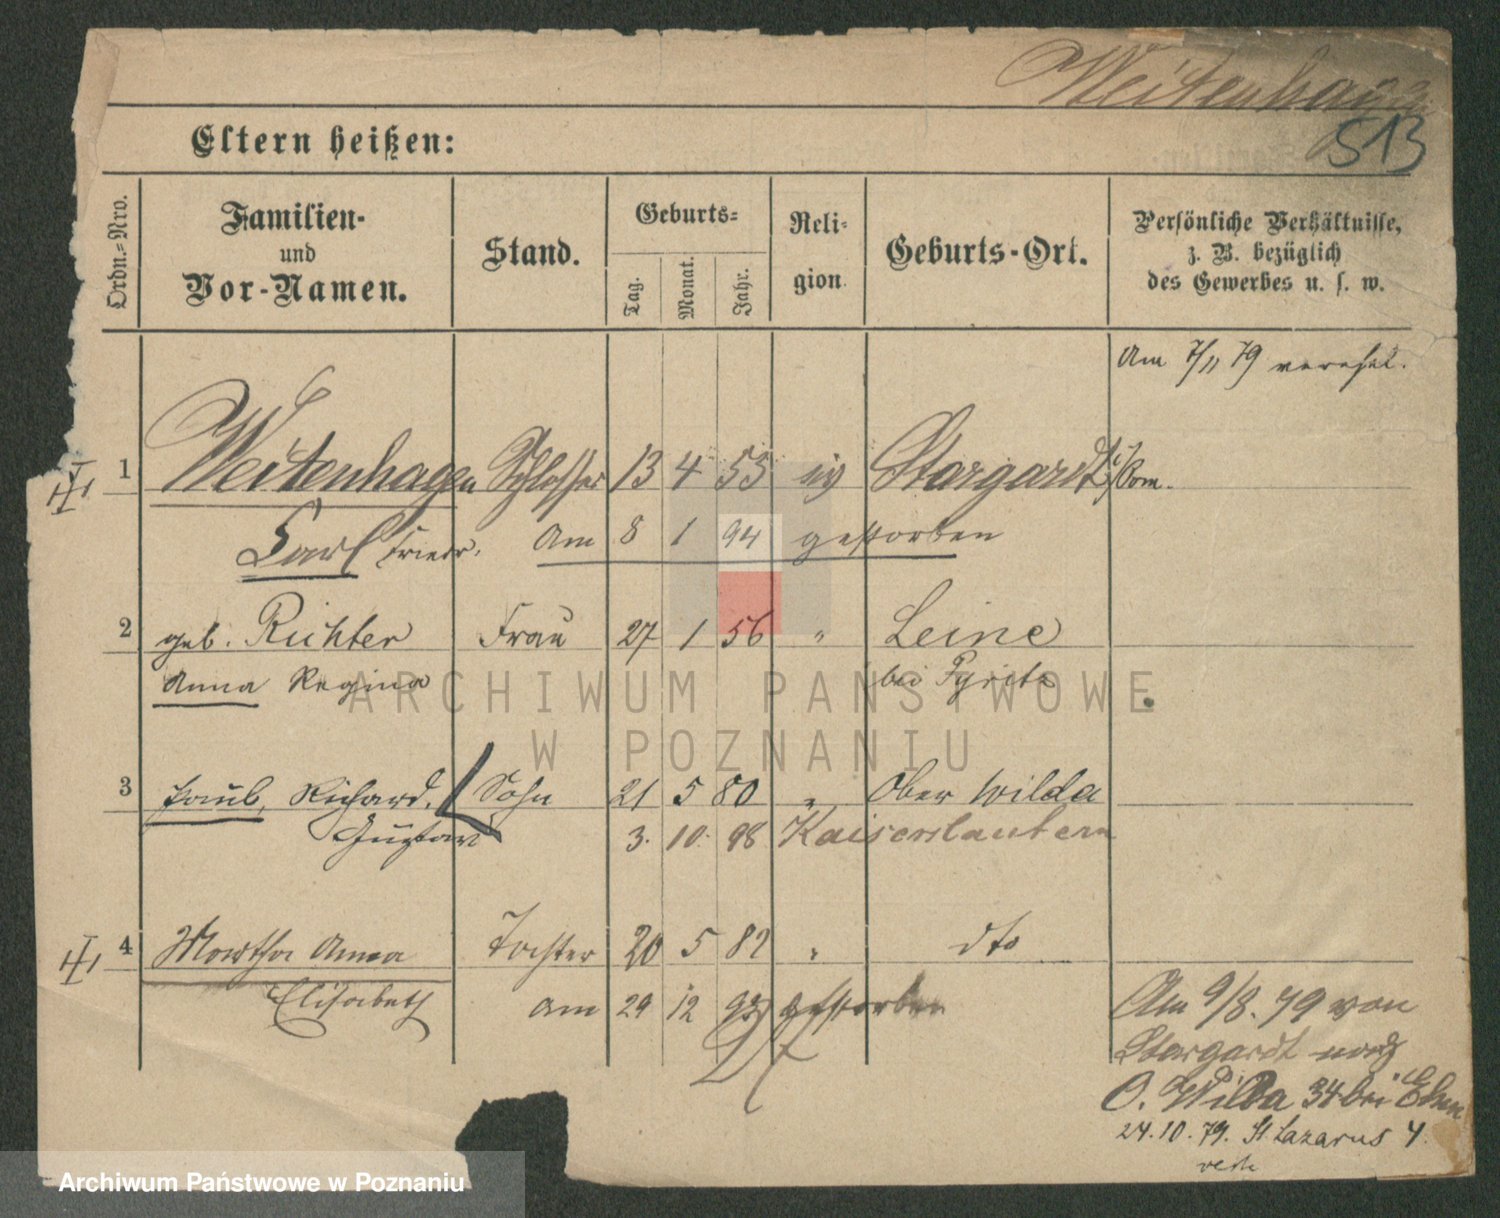 Weitenhagen
513
Eltern heißen:
Ordn.-Nro.
Familien-
und
Vor-Namen.
Stand.
Geburts-
Tag.
Monat.
Jahr.
Reli-
gion
Geburts-Ort.
Persönliche Verhältnisse,
z. B. bezüglich
des Gewerbes u. s. w.
Am 7/11 79 verehel.
1 Weitenhagen Schlosser 13 4 55 ev Stargardt i/Pom.
Carl Friedr. Am 8 1 94 gestorben
2 geb. Richter Frau 27 1 56 " Leine
Anna Regina bei Pyritz
3 Paul, Richard, Sohn 21 5 80 " Ober Wilda
Gustav 3. 10. 98 Kaiserslautern
4 Martha Anna Tochter 20 5 82 " dto
Elisabeth am 29 12 93 gestorben
Am 9/8. 79 von
Stargardt nach
O. Wilda 34 bei
24.10.79. St Lazarus 4.
ARCHIWUM PAŃSTWOWE
W POZNANIU
Archiwum Państwowe w Poznaniu